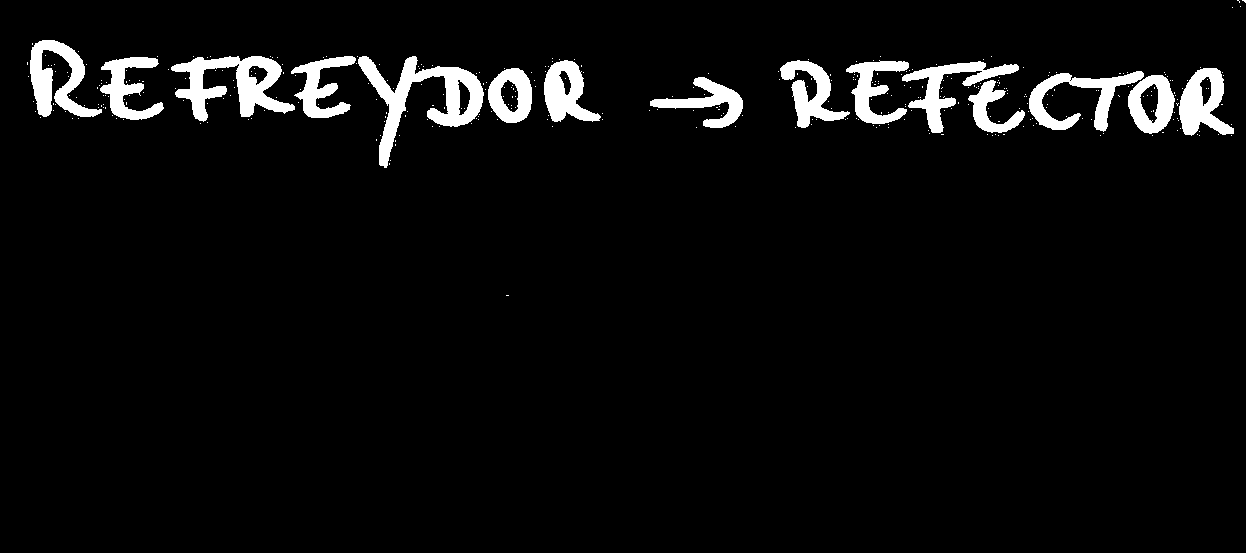 REFREYDOR → REFECTOR